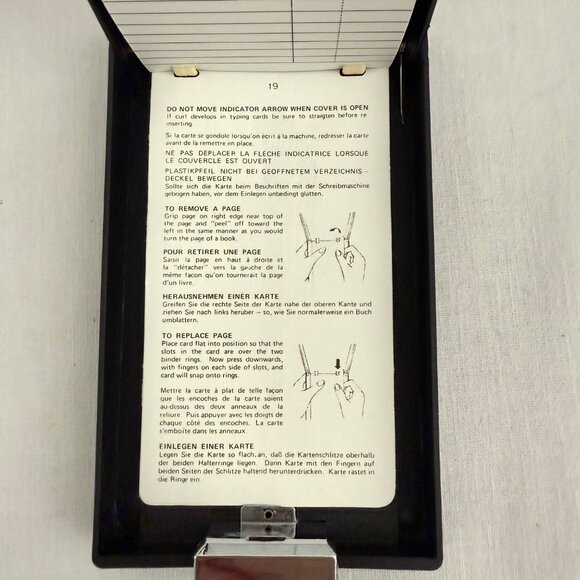 19
DO NOT MOVE INDICATOR ARROW WHEN COVER IS OPEN
If curl develops in typing cards be sure to straigten before re-
inserting.
Si la carte se gondole lorsqu'on écrit à la machine, redresser la carte
avant de la remettre en place.
NE PAS DÉPLACER LA FLÈCHE INDICATRICE LORSQUE
LE COUVERCLE EST OUVERT
PLASTIKPFEIL NICHT BEI GEOFFNETEM VERZEICHNIS-
DECKEL BEWEGEN
Sollte sich die Karte beim Beschriften mit der Schreibmaschine
gebogen haben, vor dem Einlegen unbedingt glätten.
TO REMOVE A PAGE
Grip page on right edge near top of
the page and "peel" off toward the
left in the same manner as you would
turn the page of a book.
POUR RETIRER UNE PAGE
Saisir la page en haut à droite et
la "détacher" vers la gauche de la
même façon qu'on tournerait la page
d'un livre.
HERAUSNEHMEN EINER KARTE
Greifen Sie die rechte Seite der Karte nahe der oberen Kante und
ziehen Sie nach links heruber – so, wie Sie normalerweise ein Buch
umblättern.
TO REPLACE PAGE
Place card flat into position so that the
slots in the card are over the two
binder rings. Now press downwards,
with fingers on each side of slots, and
card will snap onto rings.
Mettre la carte à plat de telle façon
que les encoches de la carte soient
au-dessus des deux anneaux de la
reliure. Puis appuyer avec les doigts de
chaque côté des encoches. La carte
s'emboîte dans les anneaux.
EINLEGEN EINER KARTE
Legen Sie die Karte so flach an, daß die Kartenschlitze oberhalb
der beiden Halterringe liegen. Dann Karte mit den Fingern auf
beiden Seiten der Schlitze haltend herunterdrücken. Karte rastet in
die Ringe ein.